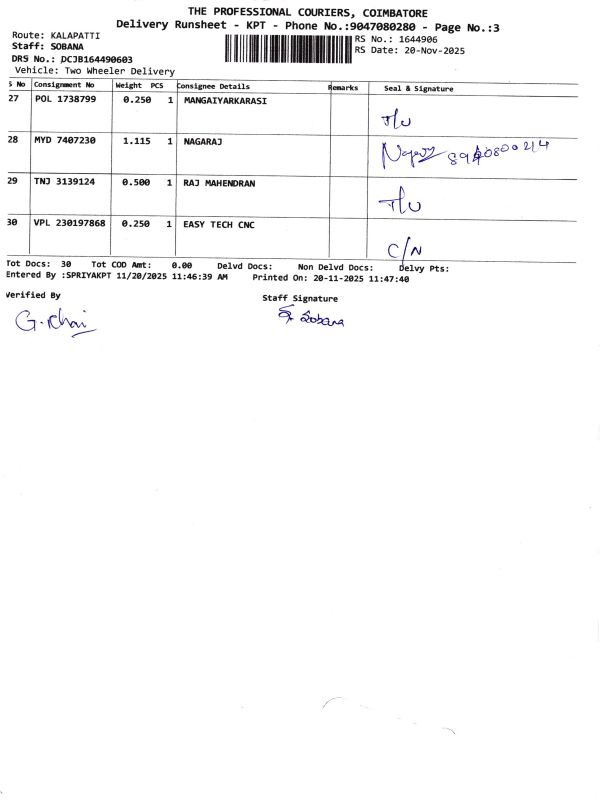 THE PROFESSIONAL COURIERS, COIMBATORE
Delivery Runsheet - KPT - Phone No.:9047080280 - Page No.:3
Route: KALAPATTI
RS No.: 1644906
Staff: SOBANA
RS Date: 20-Nov-2025
DRS No.: DCJB164490603
Vehicle: Two Wheeler Delivery
S No Consignment No Weight PCS Consignee Details Remarks Seal & Signature
27 POL 1738799 0.250 1 MANGAIYARKARASI
28 MYD 7407230 1.115 1 NAGARAJ
29 TNJ 3139124 0.500 1 RAJ MAHENDRAN
30 VPL 230197868 0.250 1 EASY TECH CNC C/N
Tot Docs: 30 Tot COD Amt: 0.00 Delvd Docs: Non Delvd Docs: Delvy Pts:
Entered By :SPRIYAKPT 11/20/2025 11:46:39 AM Printed On: 20-11-2025 11:47:40
Verified By Staff Signature
Sobana